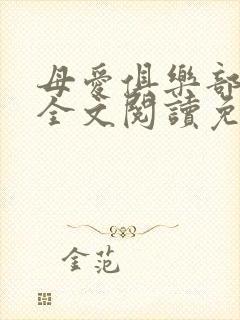 母愛俱樂部
全文閱讀免
金范